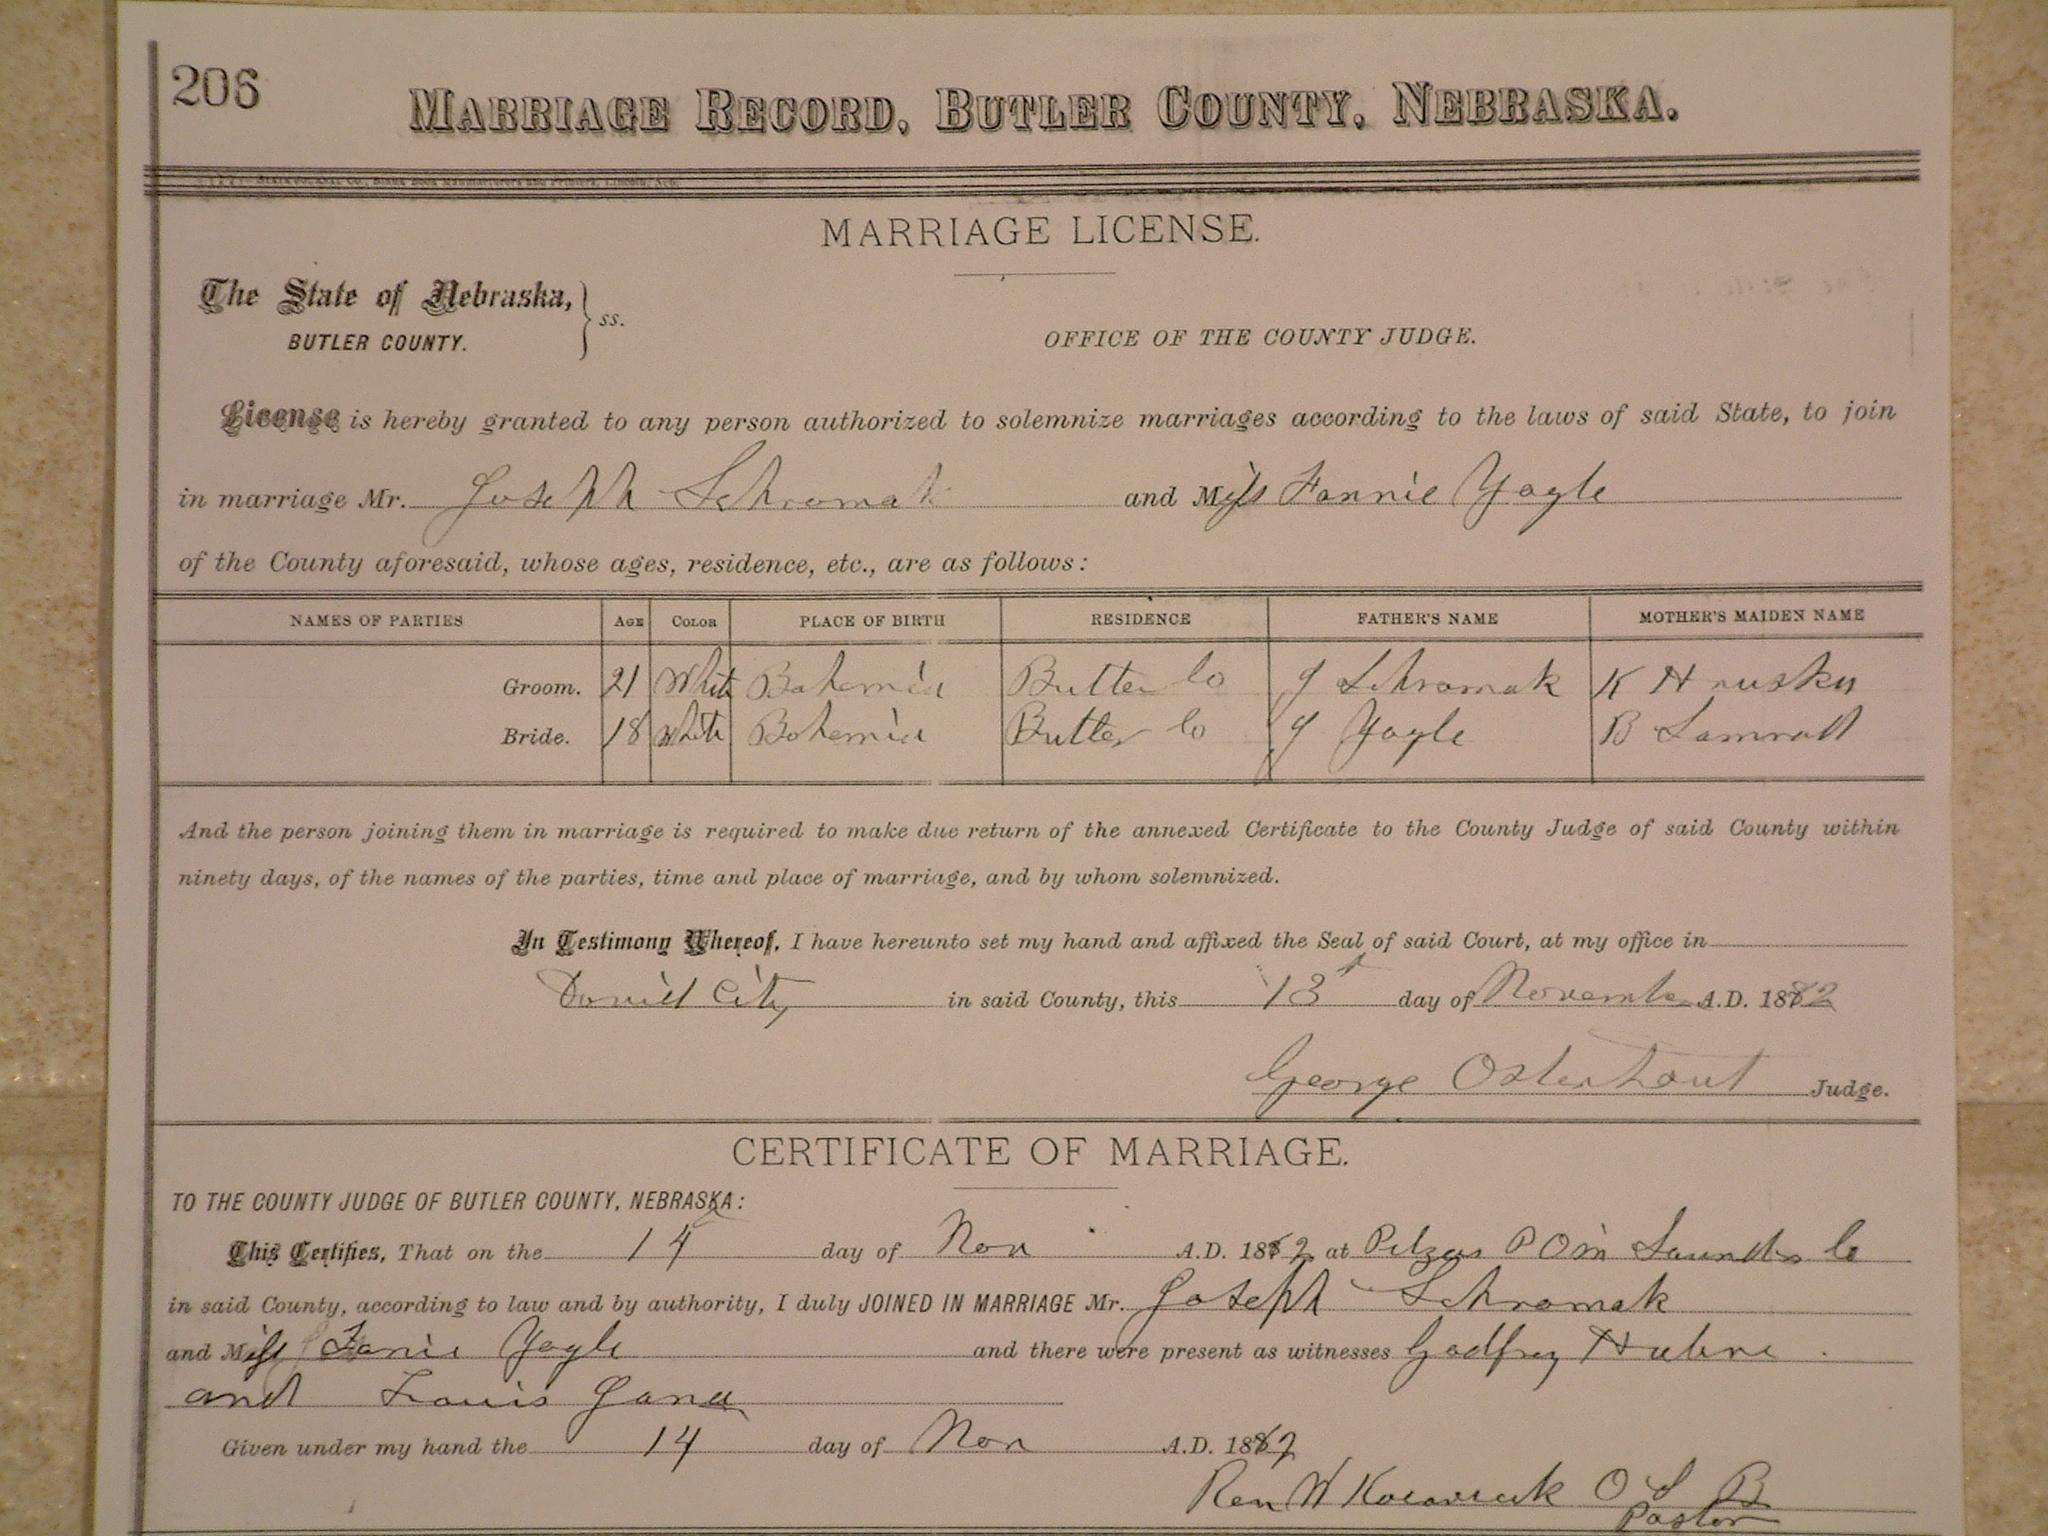 206
MARRIAGE RECORD, BUTLER COUNTY, NEBRASKA.
STATE JOURNAL CO., Blank Book Manufacturers and Printers, Lincoln, Neb.
MARRIAGE LICENSE.
The State of Nebraska, } ss.
BUTLER COUNTY.
OFFICE OF THE COUNTY JUDGE.
License is hereby granted to any person authorized to solemnize marriages according to the laws of said State, to join
in marriage Mr. Joseph Schromak and Miss Fannie Yagle
of the County aforesaid, whose ages, residence, etc., are as follows:
NAMES OF PARTIES AGE COLOR PLACE OF BIRTH RESIDENCE FATHER'S NAME MOTHER'S MAIDEN NAME
Groom. 21 White Bohemia Butler Co J Schromak K Hruska
Bride. 18 White Bohemia Butler Co J Yagle B
And the person joining them in marriage is required to make due return of the annexed Certificate to the County Judge of said County within
ninety days, of the names of the parties, time and place of marriage, and by whom solemnized.
In Testimony Whereof, I have hereunto set my hand and affixed the Seal of said Court, at my office in
David City in said County, this 13 day of November A.D. 1882
George Osterhout Judge.
CERTIFICATE OF MARRIAGE.
TO THE COUNTY JUDGE OF BUTLER COUNTY, NEBRASKA:
This Certifies, That on the 14 day of Nov A.D. 1882 at P O in Saunders Co
in said County, according to law and by authority, I duly JOINED IN MARRIAGE Mr. Joseph Schromak
and Miss Fanie Yagle and there were present as witnesses Godfrey Hubne
and Louis Jana
Given under my hand the 14 day of Nov A.D. 1882
Rev W O S B
Pastor